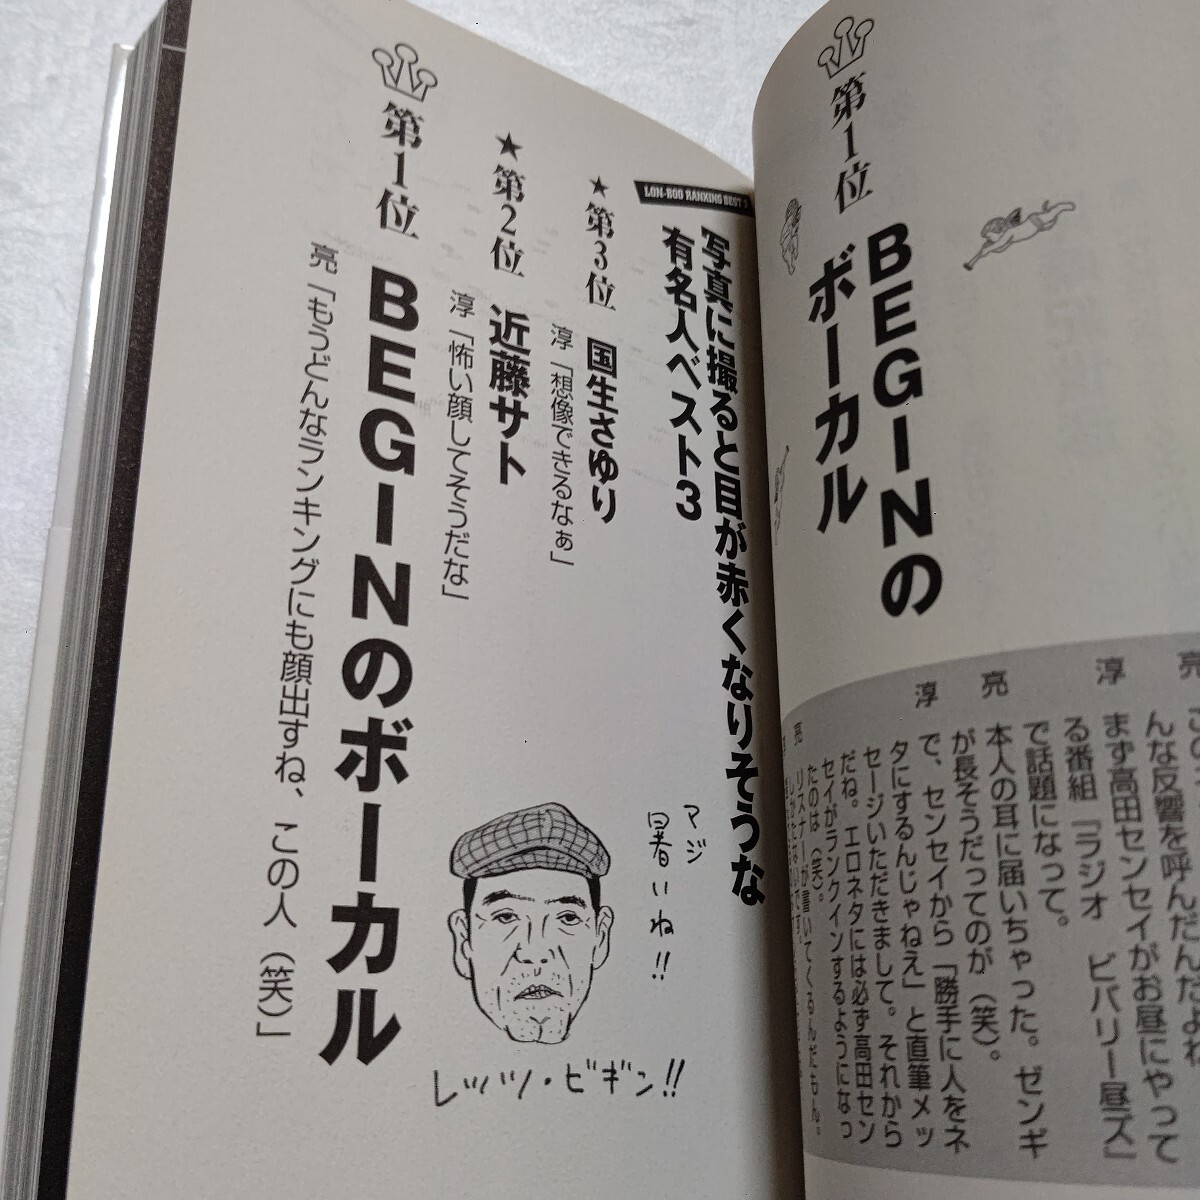 第1位
BEGINの
ボーカル
亮
んな反響を呼んだんだよね
淳
まず高田センセイがお昼にやって
る番組「ラジオ ビバリー昼ズ」
で話題になって。
亮
本人の耳に届いちゃった。ゼンギ
が長そうだってのが（笑）。
淳
で、センセイから「勝手に人をネ
タにするんじゃねえ」と直筆メッ
セージいただきまして。それから
だね。エロネタには必ず高田セン
セイがランクインするようになっ
たのは（笑）。
亮
リスナーが書いてくるんだもん。
LON-BOO RANKING BEST 3
写真に撮ると目が赤くなりそうな
有名人ベスト3
★第3位 国生さゆり
淳「想像できるなぁ」
★第2位 近藤サト
淳「怖い顔してそうだな」
第1位 BEGINのボーカル
亮「もうどんなランキングにも顔出すね、この人（笑）」
マジ
暑いね!!
レッツ・ビギン!!